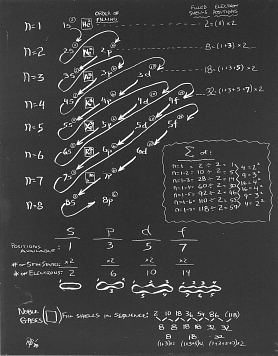 ORDER OF FILLING
FILLED ELECTRON SHELLS POSITIONS
n=1 1s He 2=(1)×2
n=2 2s 2p 8=(1+3)×2
n=3 3s 3p 3d 18=(1+3+5)×2
n=4 4s 4p 4d 4f 32=(1+3+5+7)×2
n=5 5s 5p 5d 5f
n=6 6s 6p 6d
n=7 7s 7p
n=8 8s 8p
Σ of:
n=1 = 2 ÷ 2 = 1
n=1-2 = 10 ÷ 2 = 5
n=1-3 = 28 ÷ 2 = 14
n=1-4 = 60 ÷ 2 = 30
n=1-5 = 92 ÷ 2 = 46
n=1-6 = 110 ÷ 2 = 55
n=1-7 = 118 ÷ 2 = 59
S p d f
POSITIONS AVAILABLE: 1 3 5 7
# OF SPIN STATES: ×2 ×2 ×2 ×2
# OF ELECTRONS: 2 6 10 14
NOBLE GASES () FILL SHELLS IN SEQUENCE: 2 10 18 36 54 86 (118)
8 8 18 18 32 32
8 18 32
(1+3)×2 (1+3+5)×2 (1+3+5+7)×2